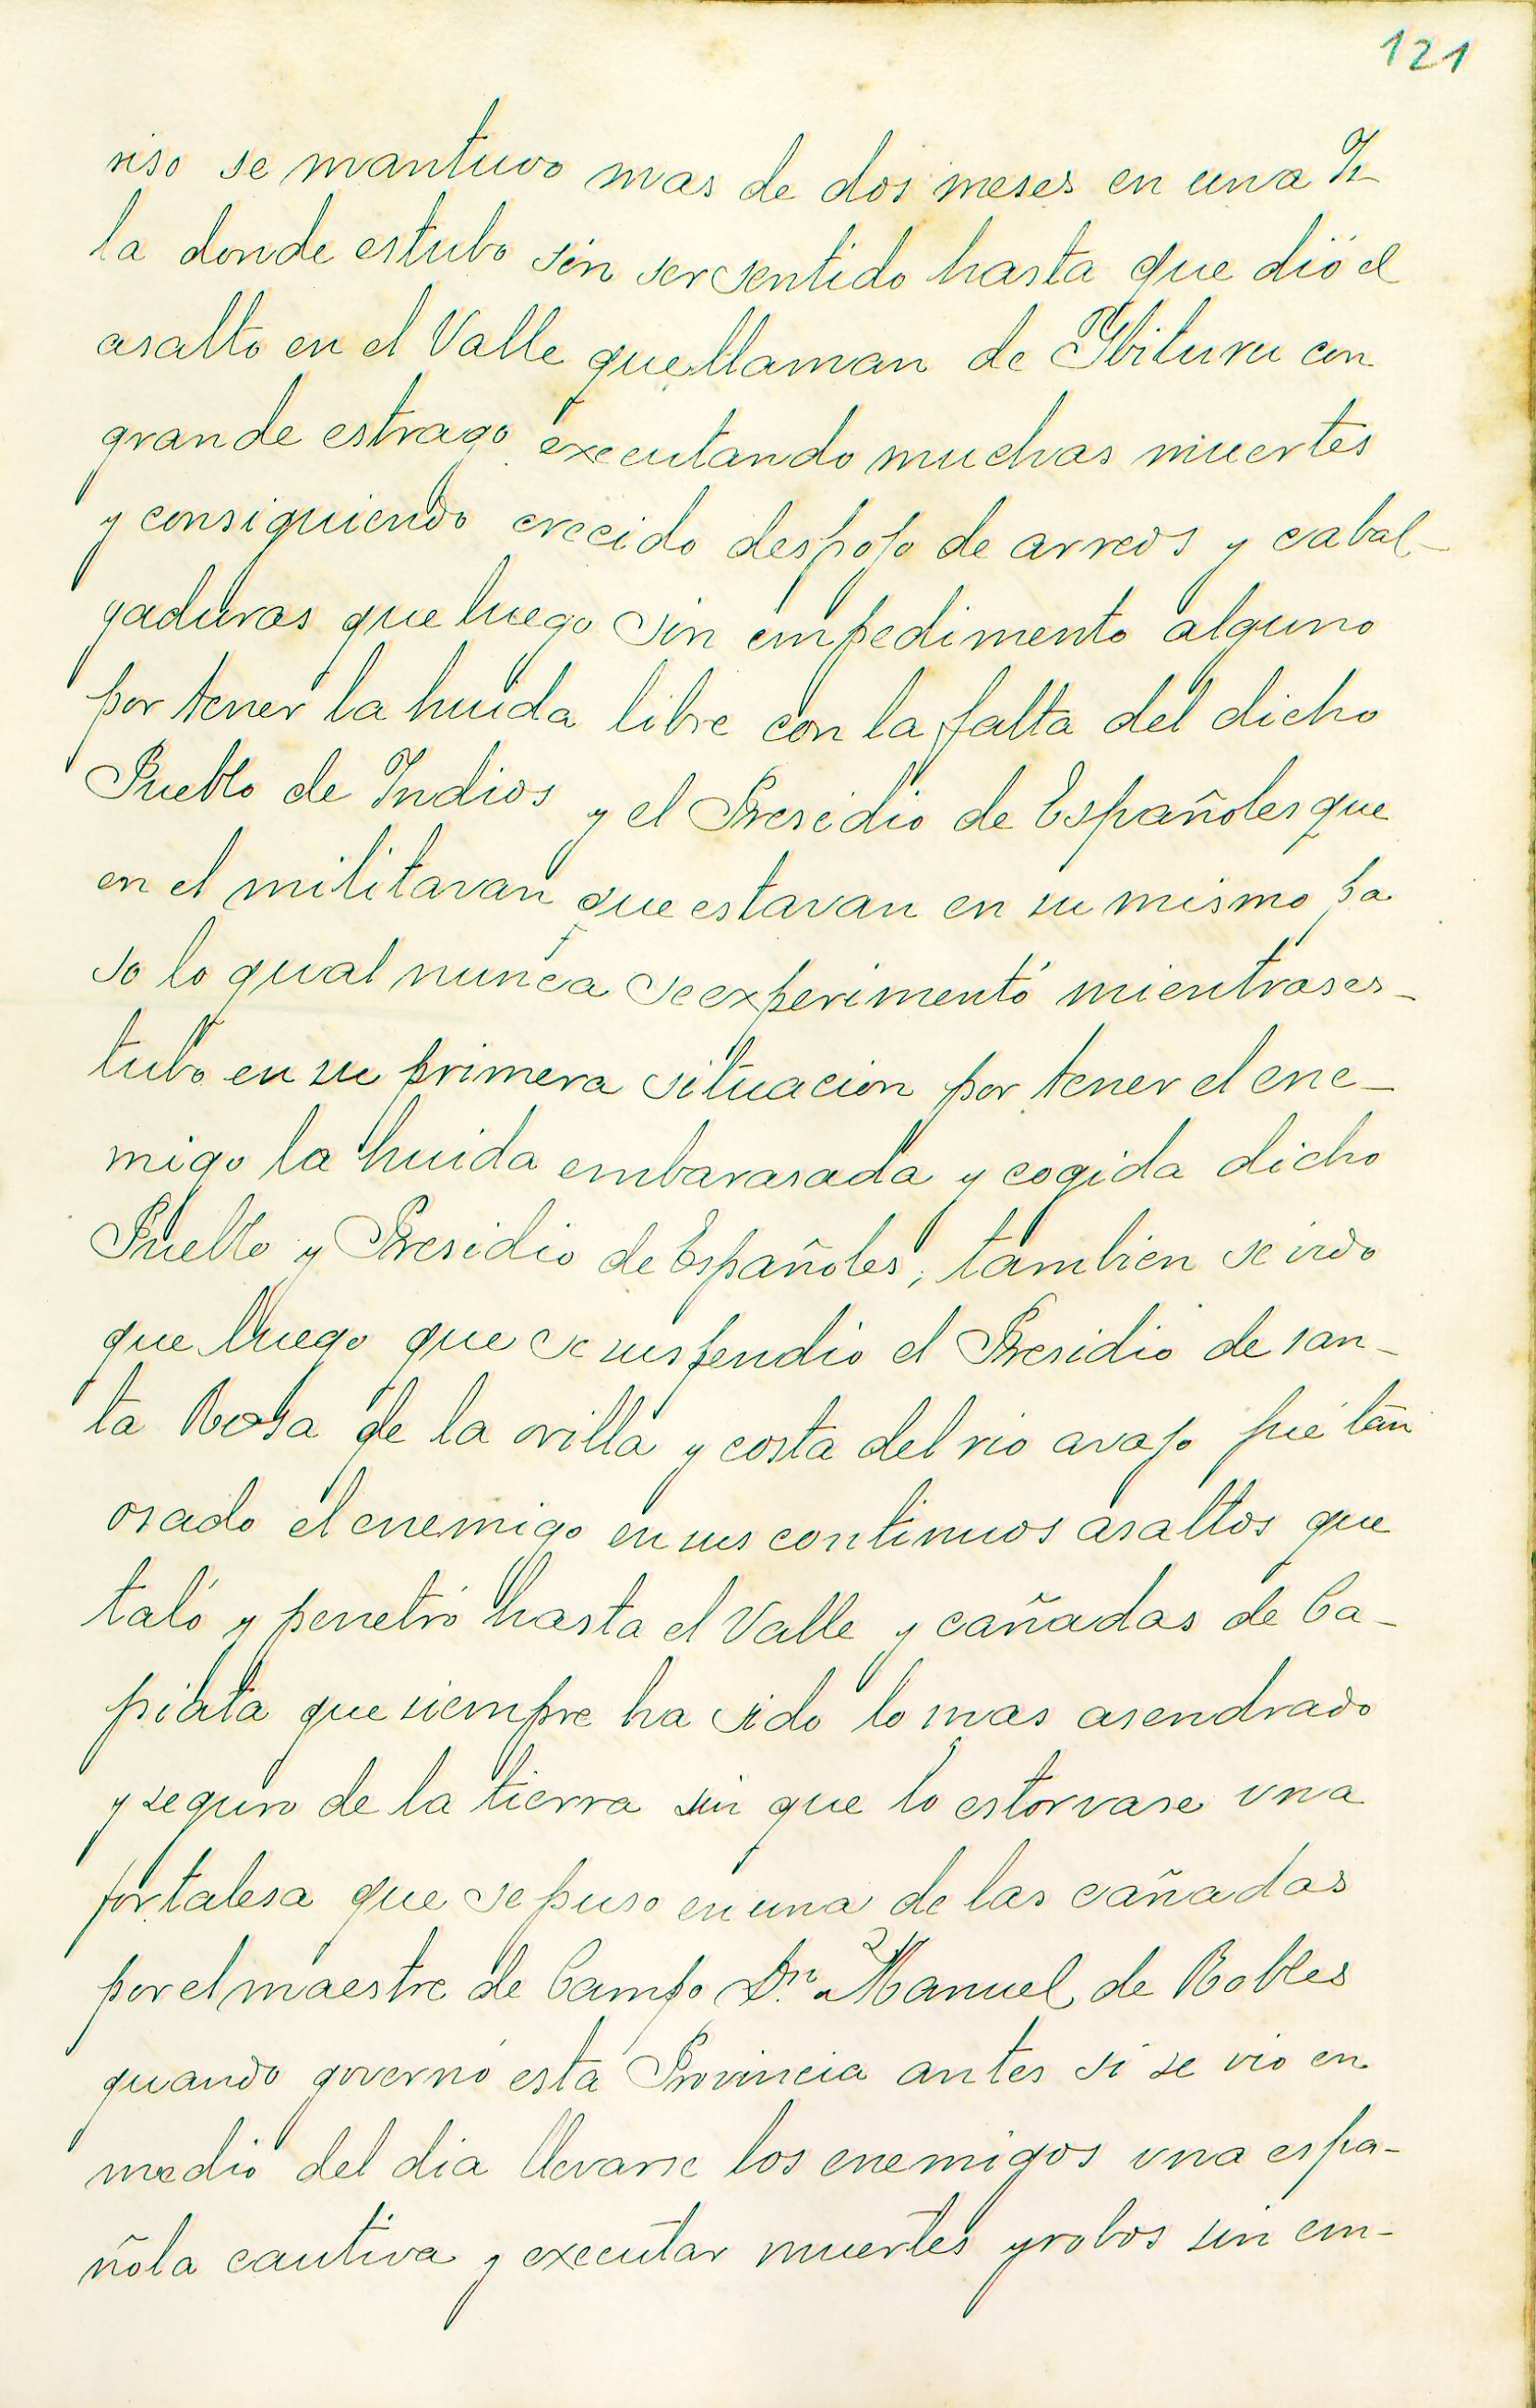 121
riso se mantuvo mas de dos meses en una Is-
la donde estubo sin ser sentido hasta que dió el
asalto en el Valle que llaman de Ybituru con
grande estrago executando muchas muertes
y consiguiendo crecido despojo de arreos y cabal-
gaduras que luego sin impedimento alguno
por tener la huida libre con la falta del dicho
Pueblo de Indios y el Presidio de Españoles que
en el militavan que estavan en su mismo pa
so lo qual nunca se experimentó mientras es-
tubo en su primera situacion por tener el ene-
migo la huida embarasada y cogida dicho
Pueblo y Presidio de Españoles, tambien se vido
que luego que se suspendio el Presidio de san-
ta Rosa de la orilla y costa del rio avajo fué tan
osado el enemigo en sus continuos asaltos que
taló y penetró hasta el Valle y cañadas de Ca-
piata que siempre ha sido lo mas asendrado
y seguro de la tierra sin que lo estorvase una
fortalesa que se puso en una de las cañadas
por el maestre de Campo Dn. Manuel de Robles
quando governó esta Provincia antes si se vio en
medio del dia llevarse los enemigos una espa-
ñola cautiva y executar muertes y robos sin em-